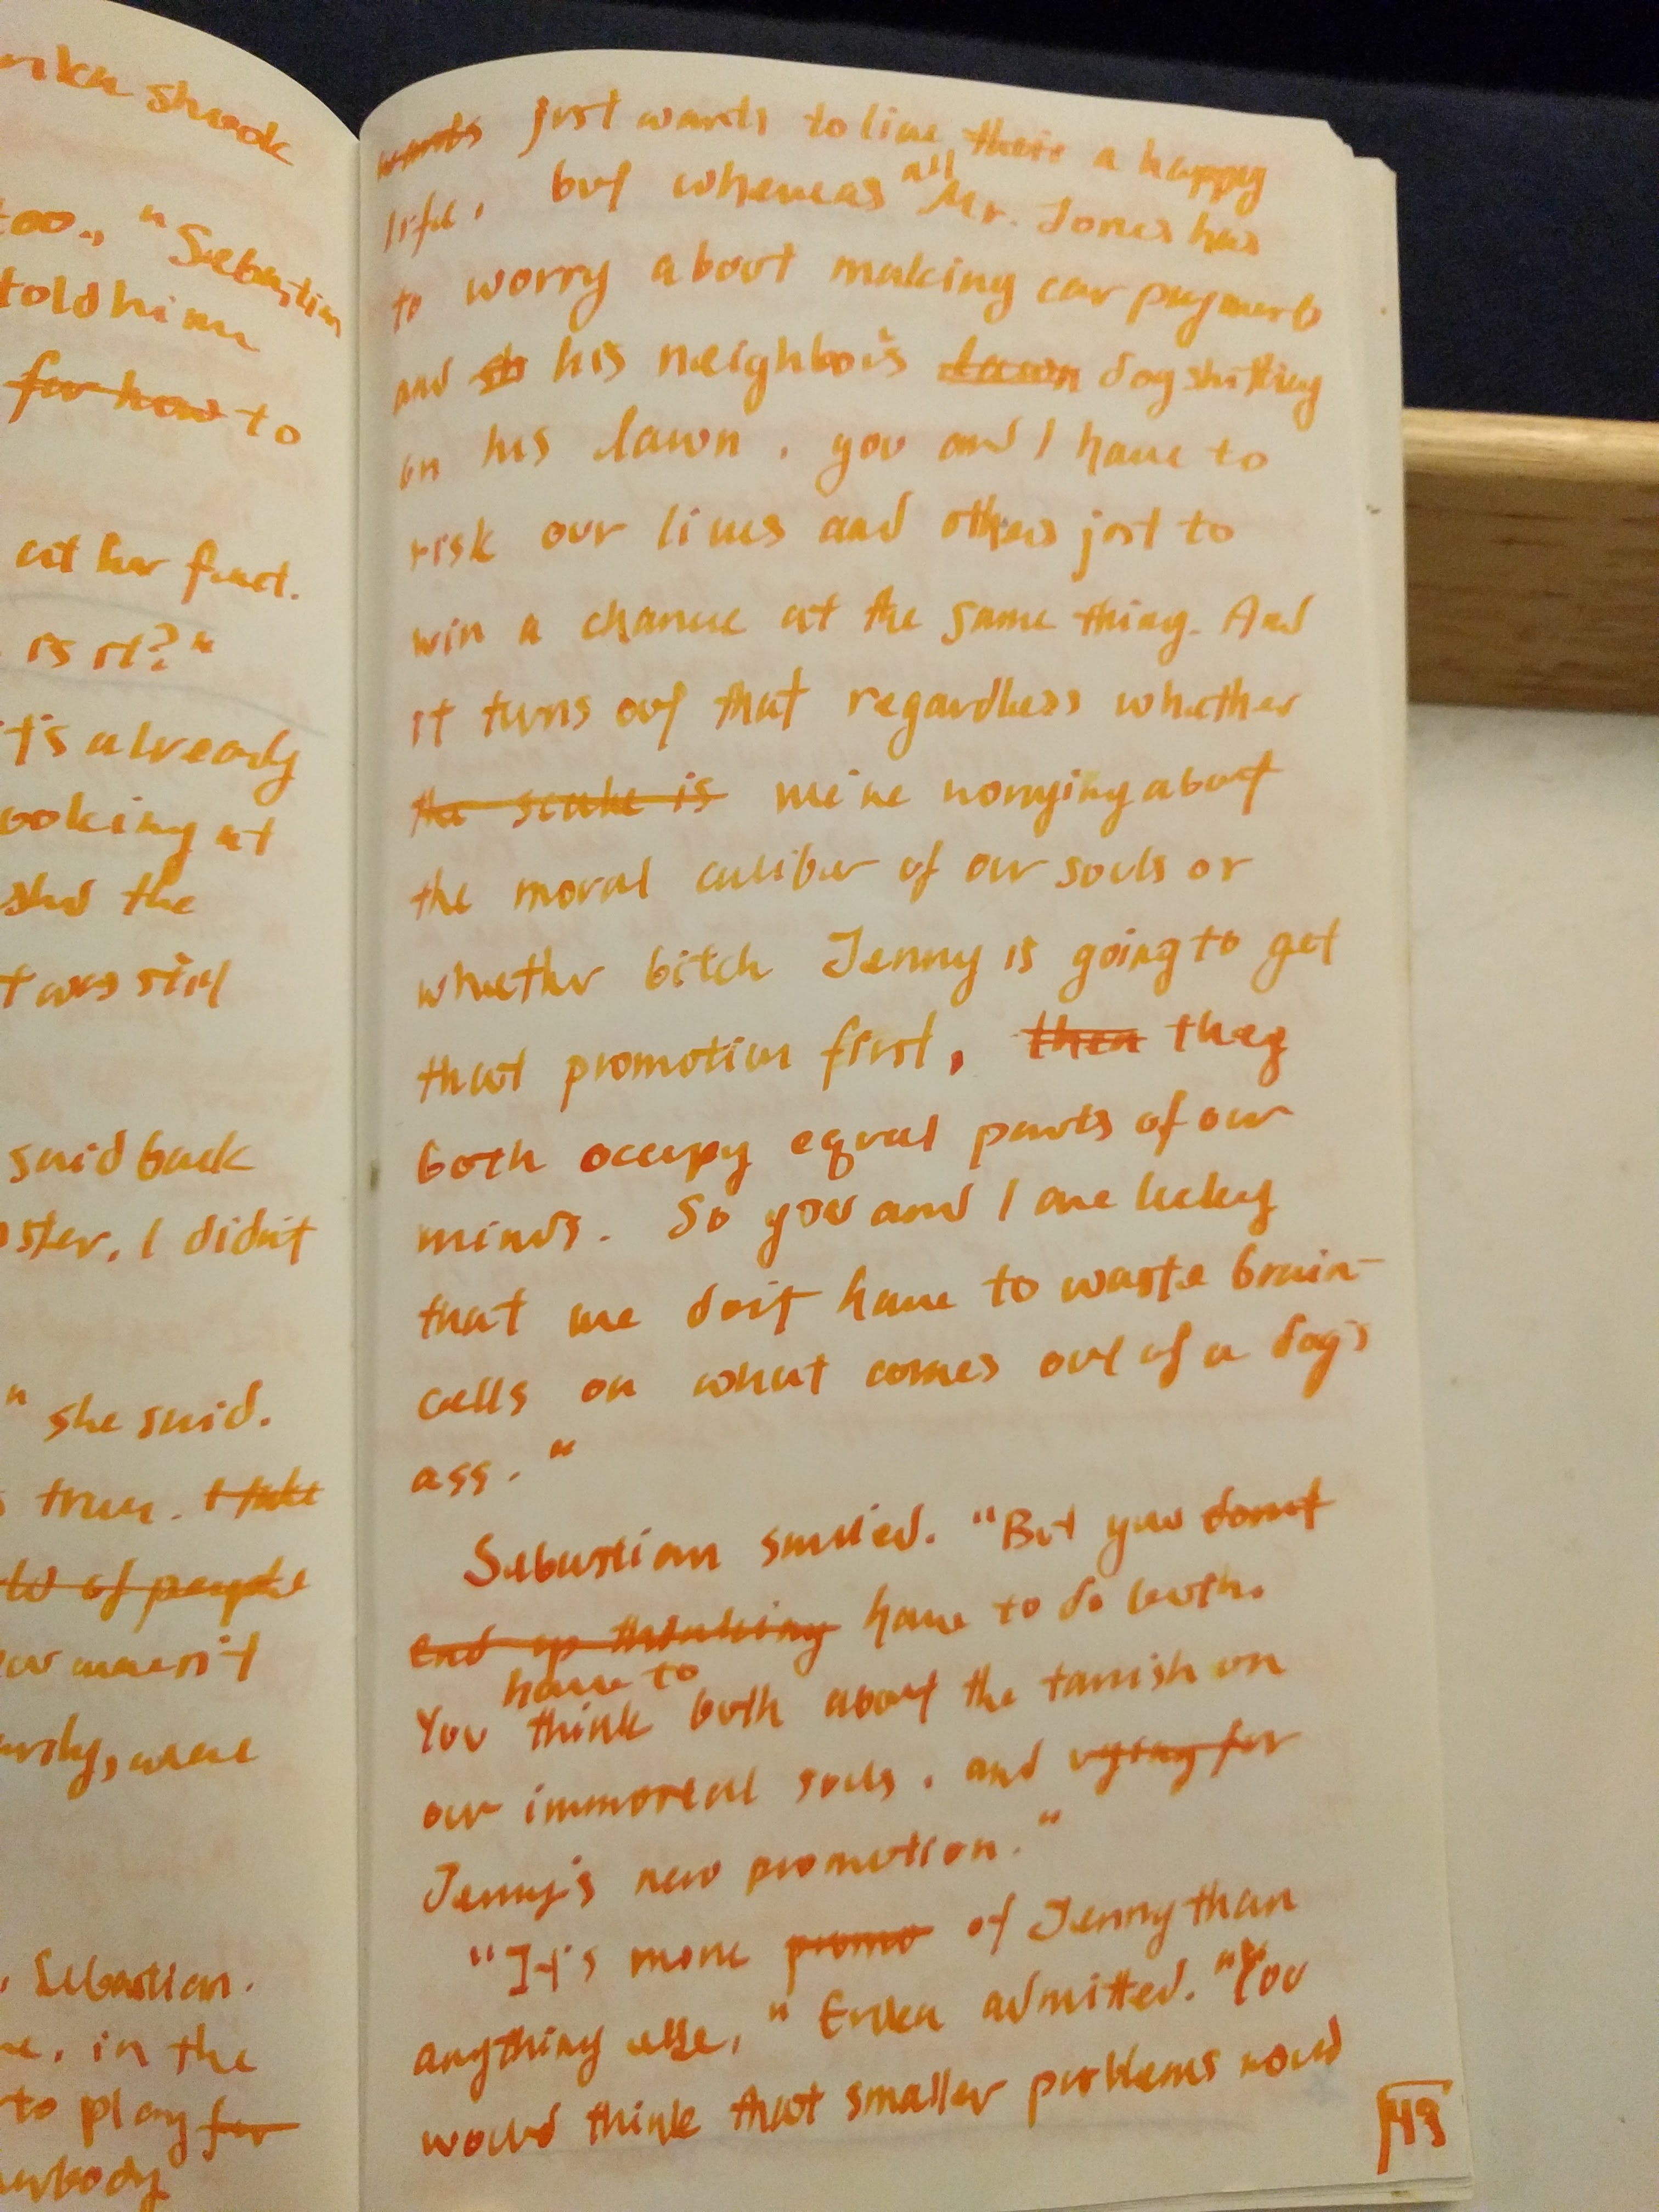 erika shook
too., "Sebastian
told him
for how to
at her feet.
is it?"
it's already
looking at
the
t was still
said back
ster. I didn't
" she said.
true. I take
of people
weren't
were
Sebastian.
in the
to play for
wants just wants to live their a happy
life, but whereas all Mr. Jones has
to worry about making car payments
and his neighbor's lawn dog shitting
on his lawn, you and I have to
risk our lives and others just to
win a chance at the same thing. And
it turns out that regardless whether
the scale is we're worrying about
the moral caliber of our souls or
whether bitch Jenny is going to get
that promotion first, then they
both occupy equal parts of our
minds. So you and I are lucky
that we don't have to waste brain-
cells on what comes out of a dog's
ass."
Sebastian smiled. "But you don't
end up thinking have to do both.
have to
You think both about the tarnish on
our immortal souls, and vying for
Jenny's new promotion."
"It's more promo of Jenny than
anything else," Erika admitted. "You
would think that smaller problems would
49